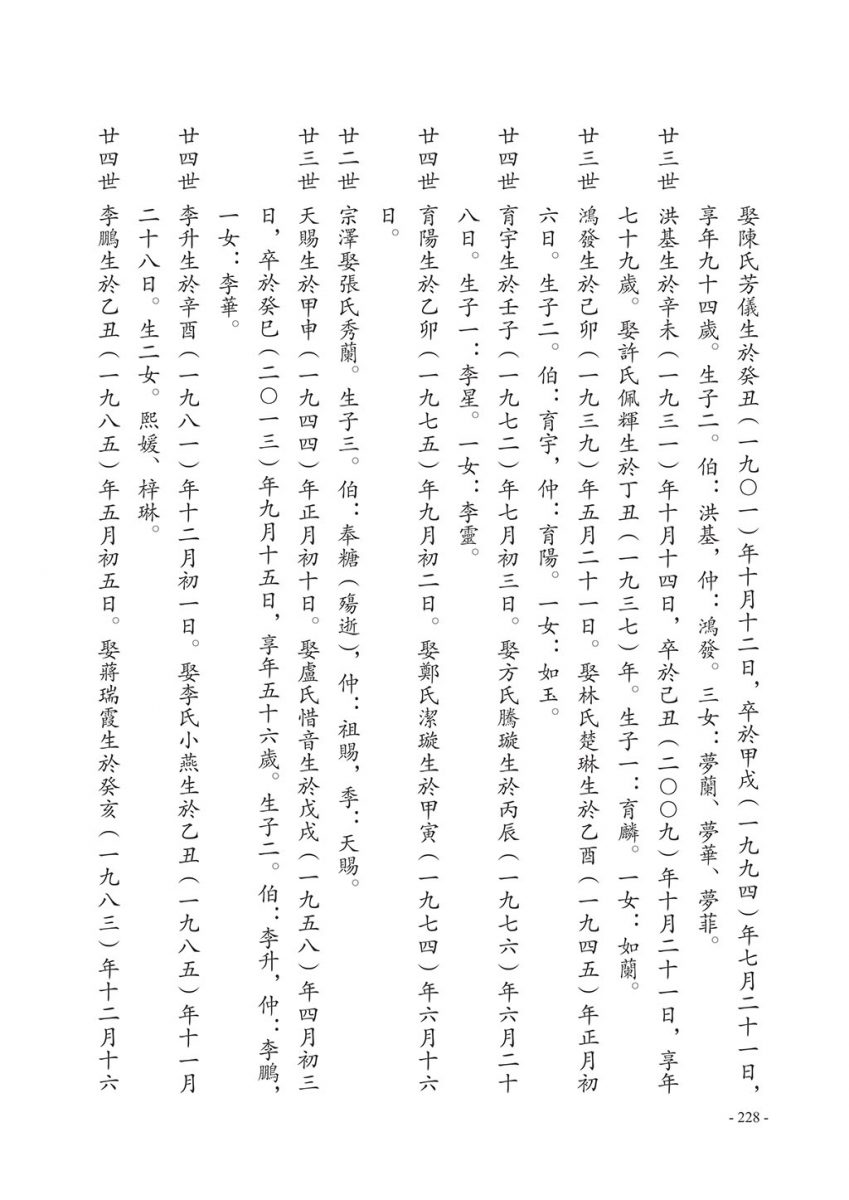 娶陳氏芳儀生於癸丑(一九〇一)年十月十二日,卒於甲戌(一九九四)年七月二十一日,
享年九十四歲。生子二。伯:洪基,仲:鴻發。三女:夢蘭、夢華、夢菲。
廿三世 洪基生於辛未(一九三一)年十月十四日,卒於己丑(二〇〇九)年十月二十一日,享年
七十九歲。娶許氏佩輝生於丁丑(一九三七)年。生子一:育麟。一女:如蘭。
廿三世 鴻發生於己卯(一九三九)年五月二十一日。娶林氏楚琳生於乙酉(一九四五)年正月初
六日。生子二。伯:育宇,仲:育陽。一女:如玉。
廿四世 育宇生於壬子(一九七二)年七月初三日。娶方氏騰璇生於丙辰(一九七六)年六月二十
八日。生子一:李星。一女:李靈。
廿四世 育陽生於乙卯(一九七五)年九月初二日。娶鄭氏潔璇生於甲寅(一九七四)年六月十六
日。
廿二世 宗澤娶張氏秀蘭。生子三。伯:奉糖(殤逝),仲:祖賜,季:天賜。
廿三世 天賜生於甲申(一九四四)年正月初十日。娶盧氏惜音生於戊戌(一九五八)年四月初三
日,卒於癸巳(二〇一三)年九月十五日,享年五十六歲。生子二。伯:李升,仲:李鵬,
一女:李華。
廿四世 李升生於辛酉(一九八一)年十二月初一日。娶李氏小燕生於乙丑(一九八五)年十一月
二十八日。生二女。熙媛、梓琳。
廿四世 李鵬生於乙丑(一九八五)年五月初五日。娶蔣瑞霞生於癸亥(一九八三)年十二月十六
- 228 -